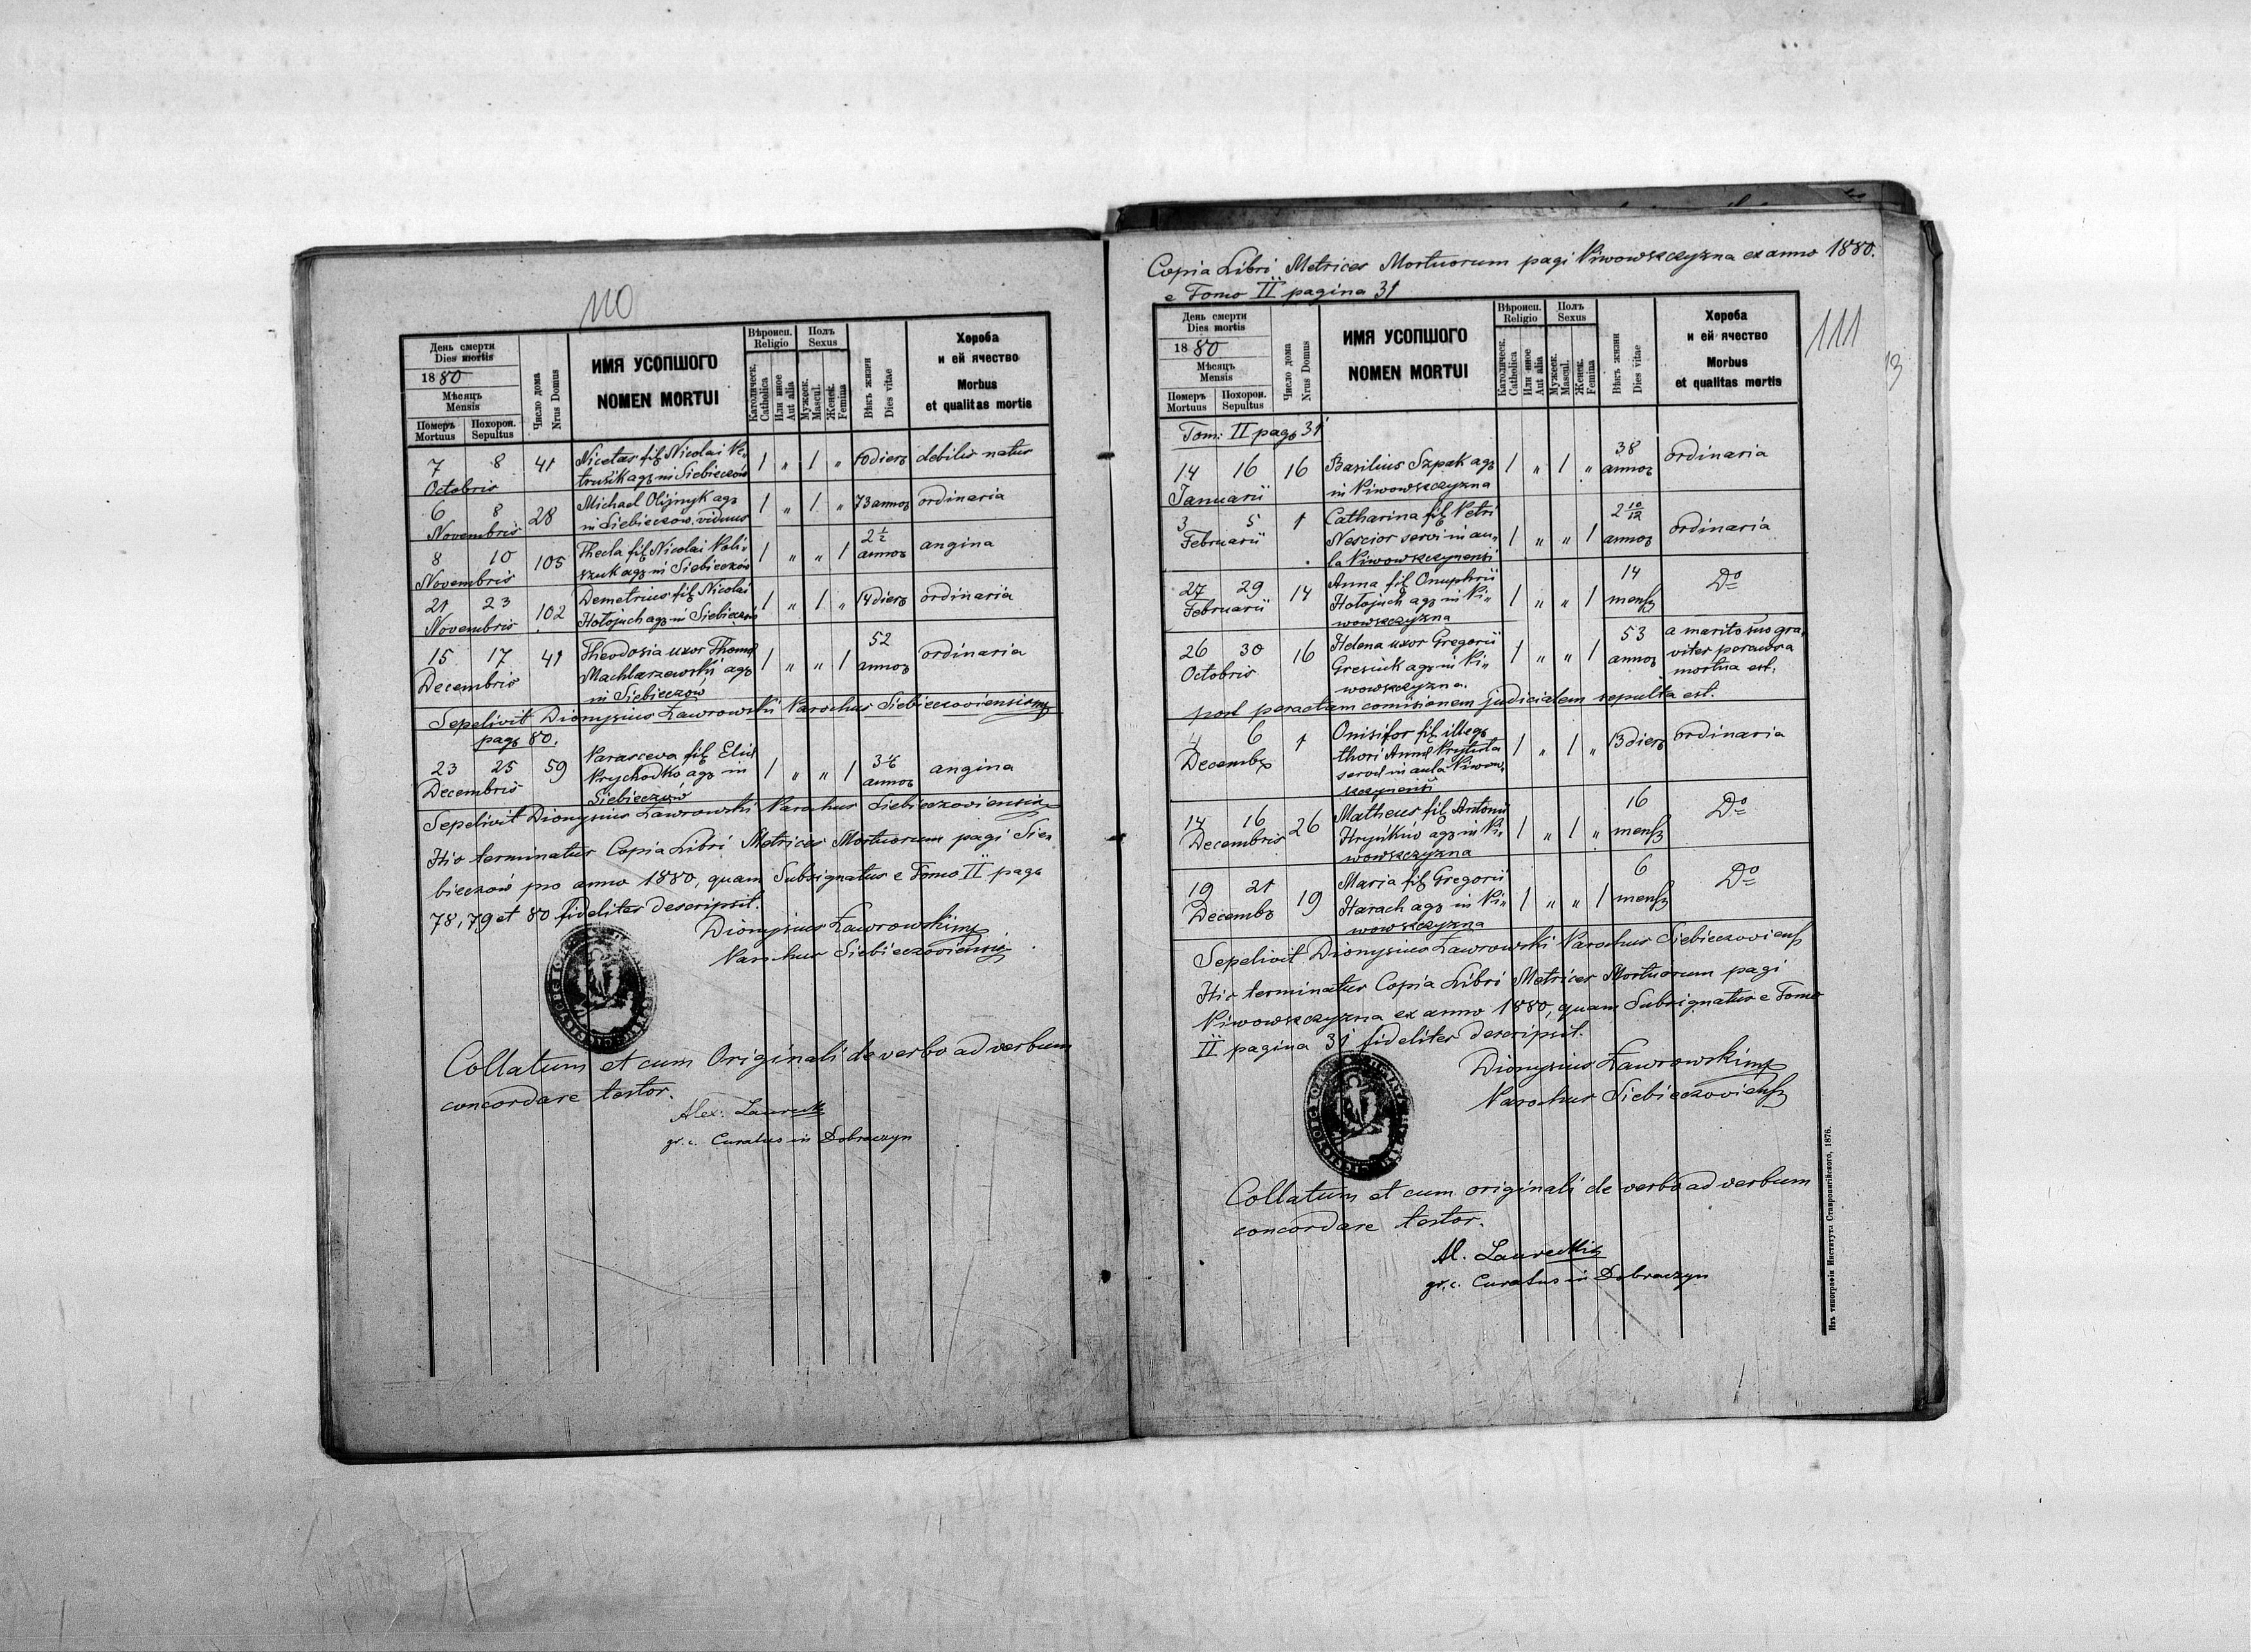 110
День смерти
Dies mortis
1880
Мѣсяцъ
Mensis
Померъ
Mortuus
Похорон.
Sepultus
Число дома
Nrus Domus
ИМЯ УСОПШОГО
NOMEN MORTUI
Вѣроисп.
Religio
Католическ.
Catholica
Или иное
Aut alia
Полъ
Sexus
Мужеск.
Mascul.
Женск.
Femina
Вѣкъ жизни
Dies vitae
Хороба
и ей ячество
Morbus
et qualitas mortis
7 8 41 Nicetas fil Nicolai Pe- 1 " 1 " 10 dier debilis natus
Octobris trusik agr in Siebieczów
6 8 28 Michael Olijnyk agr 1 " 1 " 73 annor ordinaria
Novembris in Siebieczow. viduus
8 10 105 Thecla fil Nicolai Poli- 1 " " 1 2 1/2 annor angina
Novembris szuk agr in Siebieczów
21 23 102 Demetrius fil Nicolai 1 " 1 " 14 dier ordinaria
Novembris Hołojuch agr in Siebieczów
15 17 41 Theodosia uxor Thomæ 1 " " 1 52 annor ordinaria
Decembris Machlarzewski agr
in Siebieczow
Sepelivit Dionysius Ławrowski Parochus Siebieczoviensis mp
pag 80.
23 25 59 Parasceva fil Eliæ 1 " " 1 annor angina
Decembris Prychodko agr in
Siebieczów
Sepelivit Dionysius Ławrowski Parochus Siebieczoviensis
Hic terminatur Copia Libri Metrices Mortuorum pagi Sie-
bieczów pro anno 1880, quam Subsignatus e Tomo II paga
78, 79 et 80 fideliter descripsit.
Dionysius Ławrowski mp
Parochus Siebieczoviensis
Collatum et cum Originali de verbo ad verbum
concordare testor.
Alex. Laurecki
gr. c. Curatus in Dobraczyn
Copia Libri Metrices Mortuorum pagi Piwowszczyzna ex anno 1880.
e Tomo II pagina 31
111
13
День смерти
Dies mortis
1880
Мѣсяцъ
Mensis
Померъ
Mortuus
Похорон.
Sepultus
Число дома
Nrus Domus
ИМЯ УСОПШОГО
NOMEN MORTUI
Вѣроисп.
Religio
Католическ.
Catholica
Или иное
Aut alia
Полъ
Sexus
Мужеск.
Mascul.
Женск.
Femina
Вѣкъ жизни
Dies vitae
Хороба
и ей ячество
Morbus
et qualitas mortis
Tom: II pag 31
14 16 16 Basilius Szpak agr 1 " 1 " 38 annor ordinaria
Januarii in Piwowszczyzna
3 5 1 Catharina fil Petri 1 " " 1 2 10/12 annor ordinaria
Februarii Nescior servi in au-
la Piwowszczynensi
27 29 14 Anna fil Onuphrii 1 " " 1 14 mens Do
Februarii Hołojuch agr in Pi-
wowszczyzna
26 30 16 Helena uxor Gregorii 1 " " 1 53 annor a marito suo gra-
Octobris Gresiuk agr in Pi- viter percussa
wowszczyzna. mortua est.
post peractam comisionem judicialem sepulta est.
4 6 1 Onisifor fil illeg 1 " 1 " 13 dier ordinaria
Decembr thori Annæ Prytuła
servæ in aula Piwow-
szczynensi
14 16 26 Matheus fil Antonii 1 " 1 " 16 mens Do
Decembris Hryńkiw agr in Pi-
wowszczyzna
19 21 19 Maria fil Gregorii 1 " " 1 6 mens Do
Decemb Harach agr in Pi-
wowszczyzna
Sepelivit Dionysius Ławrowski Parochus Siebieczoviens
Hic terminatur Copia Libri Metrices Mortuorum pagi
Piwowszczyzna ex anno 1880, quam Subsignatus e Tomo
II pagina 31 fideliter descripsit.
Dionysius Ławrowski mp
Parochus Siebieczoviens
Collatum et cum originali de verbo ad verbum
concordare testor.
Al. Laurecki
gr. c. Curatus in Dobraczyn
Изъ типографіи Института Ставропигійского, 1876.